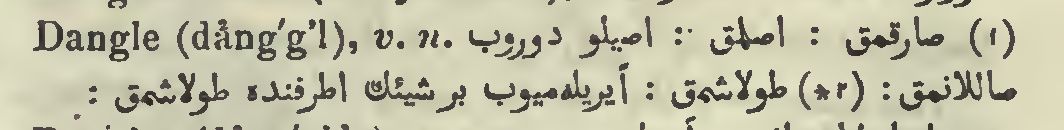 Dangle (dăng′g’l), v. n. (١) صارقمق : اصلمق : اصیلو دوروب
صاللانمق : (٢*) طولاشمق : آیریله‌میوب بر شیئك اطرفنده طولاشمق :